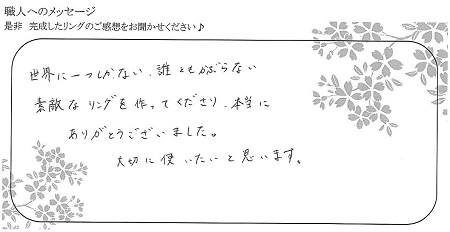 職人へのメッセージ
是非 完成したリングのご感想をお聞かせください♪
世界に一つしかない、誰ともかぶらない
素敵なリングを作ってくださり、本当に
ありがとうございました。
大切に使いたいと思います。